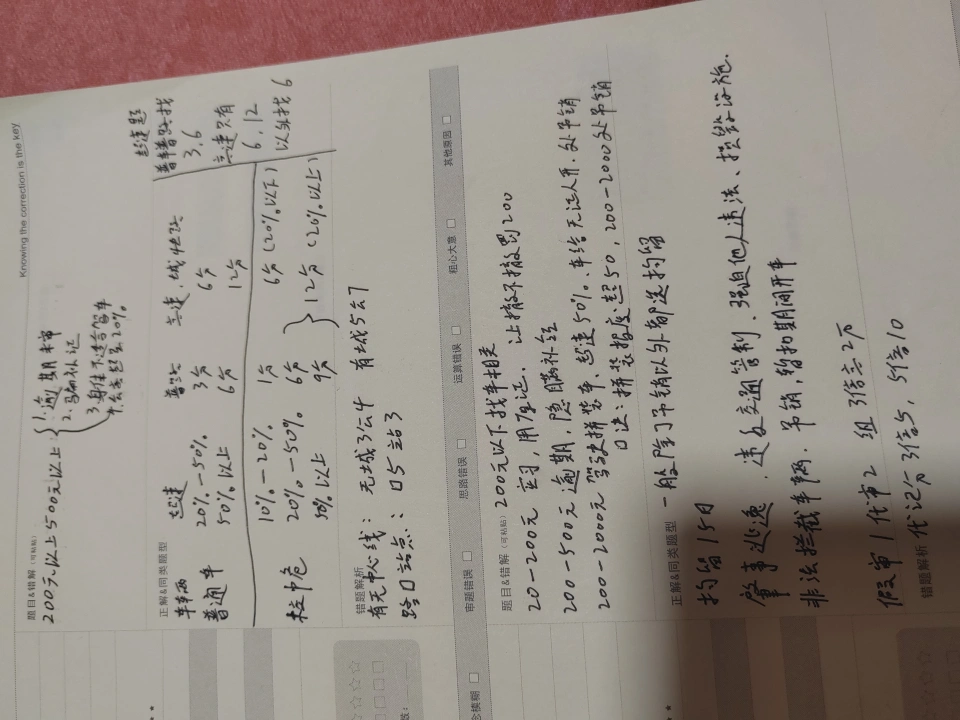 Knowing the correction is the key
题目&错解（可粘贴）
200元以上500元以上：
1. 逾期未审
2. 隐瞒补证
3. 身体不适合驾车
正解&同类题型
车辆 超速 普路 高速、城快路
普通车 20%-50% 3分 6分
50%以上 6分 12分
校客中危 10%-20% 1分 6分(20%以下)
20%-50% 6分
50%以上 9分 12分(20%以上)
超速题
普车普路找
3、6
高速只有
6、12
以外找6
错题解析
有无中心线： 无城3公4 有城5公7
路口站点： 口5站3
审题错误 □ 思路错误 □ 运算错误 □ 粗心大意 □ 其他原因 □
念模糊 □
题目&错解（可粘贴） 200元以下找车相关
20-200元 实习，用库证、让撤不撤罚200
200-500元 逾期，隐瞒补证
200-2000元 驾驶拼装车、超速50%、车给无证人开、处吊销
口决：拼装醉座超50，200-2000处吊销
正解&同类题型 一般除了吊销以外都选拘留
拘留15日
肇事逃逸、违反交通管制、强迫他人违法、损毁设施、
非法拦截车辆、吊销，暂扣期间开车
假审1代审2 组3倍六2万
错题解析 代记分3倍5，5倍10